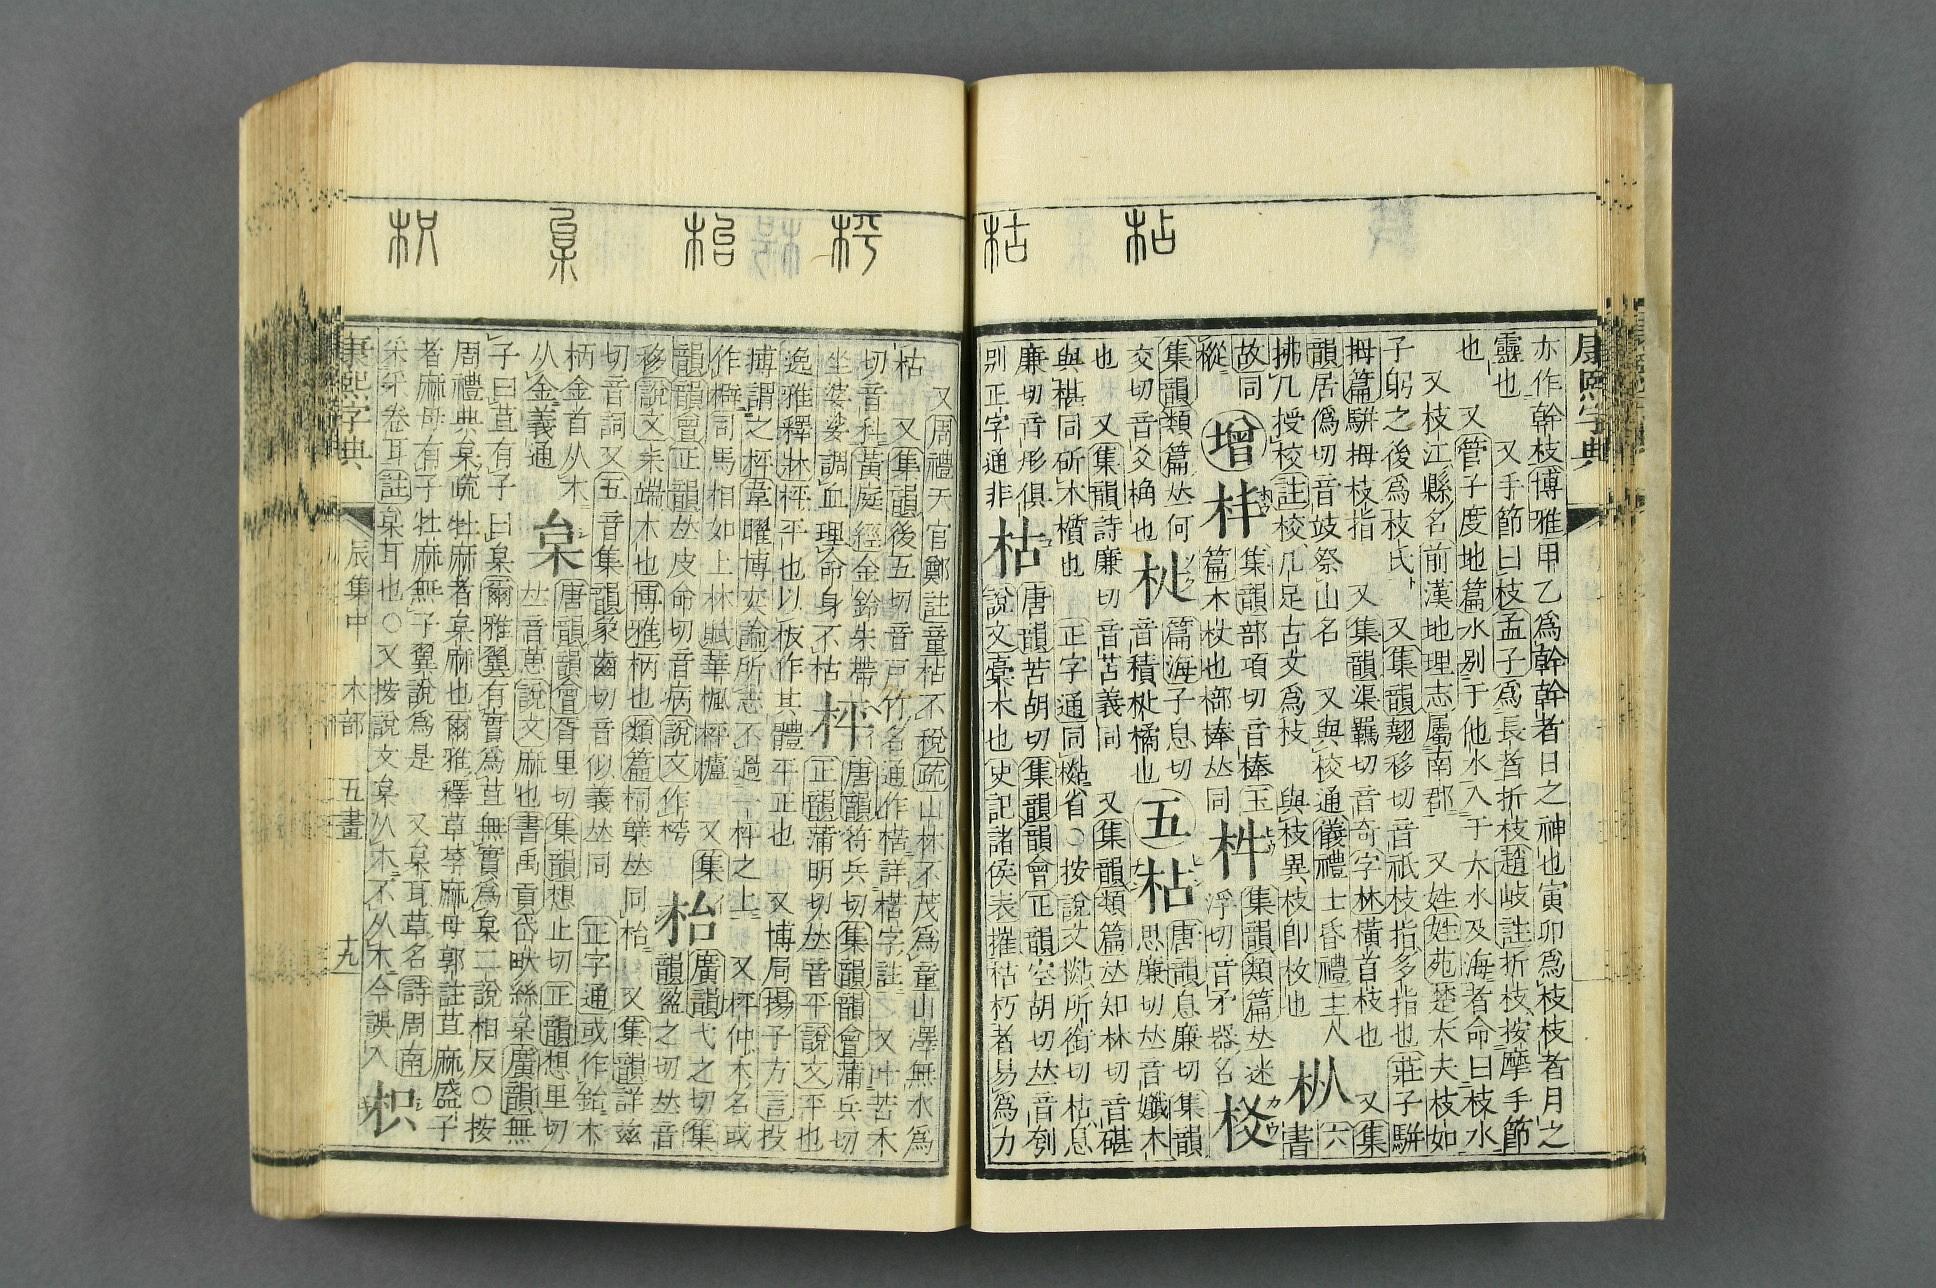 枮
枯
康熙字典
亦作幹枝博雅甲乙爲幹幹者日之神也寅卯爲枝枝者月之
靈也 又手節曰枝孟子爲長者折枝趙岐註折枝按摩手節
也 又管子度地篇水別于他水入于大水及海者命曰枝水
又枝江縣名前漢地理志屬南郡 又姓姓苑楚大夫枝如
子躬之後爲枝氏 又集韻翹移切音祇枝指多指也莊子騈
拇篇騈拇枝指 又集韻渠羈切音奇字林橫首枝也 又集
韻居僞切音 祭山名 又與校通儀禮士昏禮主人 枞 六
拂几授校註校几足古文爲枝 與枝異枝卽枚也 書
故同 增 集韻部項切音棒玉 集韻類篇𠀤迷
樅 篇木杖也棓棒𠀤同 浮切音矛器名
集韻類篇𠀤何 篇海子息切 五 枮 唐韻息廉切集韻
交切音爻桷也 音積 橘也 思廉切𠀤音孅木
也 又集韻詩廉切音苫義同 又集韻類篇𠀤知林切音碪
與椹同斫木櫍也 正字通同 省○按說文 所銜切枯息
廉切音形俱 枯 唐韻苦胡切集韻韻會正韻空胡切𠀤音刳
別正字通非 說文槀木也史記諸侯表摧枯朽者易爲力
枰
枱
枲
枳
又周禮天官鄭註童枯不稅疏山林不茂爲童山澤無水爲
枯 又集韻後五切音戸竹名通作楛詳楛字註 又叶苦禾
切音科黃庭經金鈴朱帶 枰 唐韻符兵切集韻韻會蒲兵切
坐婆娑調血理命身不枯 正韻蒲明切𠀤音平說文平也
逸雅釋牀枰平也以板作其體平正也 又博局揚子方言投
博謂之枰韋曜博奕論所志不過一枰之上 又枰仲木名或
作檘司馬相如上林賦華楓枰櫨 又集 枱 廣韻弋之切集
韻韻會正韻𠀤皮命切音病說文作枰 韻盈之切𠀤音
移說文耒端木也博雅柄也類篇枱 𠀤同枱 又集韻詳兹
切音詞又五音集韻象齒切音似義𠀤同 正字通或作鈶木
柄金首从木 枲 唐韻韻會胥里切集韻想止切正韻想里切
从金義通 𠀤音葸說文麻也書禹貢岱畎絲枲廣韻無
子曰苴有子曰枲爾雅翼有實爲苴無實爲枲二說相反○按
周禮典枲疏牡麻者枲麻也爾雅釋草莩麻母郭註苴麻盛子
者麻母有子牡麻無子翼說爲是 又枲耳草名詩周南
采采卷耳註枲耳也○又按說文枲从木不从木今誤入 枳
康熙字典 辰集中 木部 五畫 十九